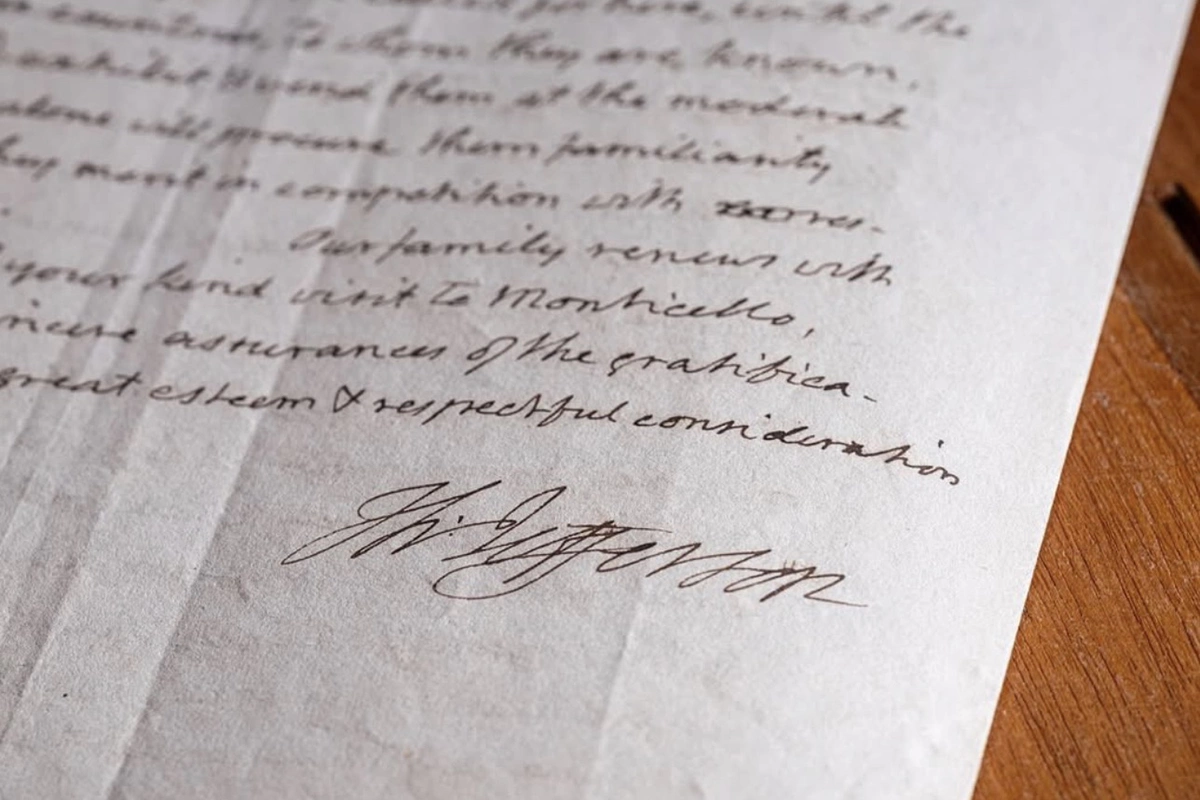 until the
to whom they are known.
send them at the moderate
alone will procure them familiarity
they merit in competition with
Our family renews with
your kind visit to Monticello,
assurances of the gratifica-
great esteem & respectful consideration
Th: Jefferson